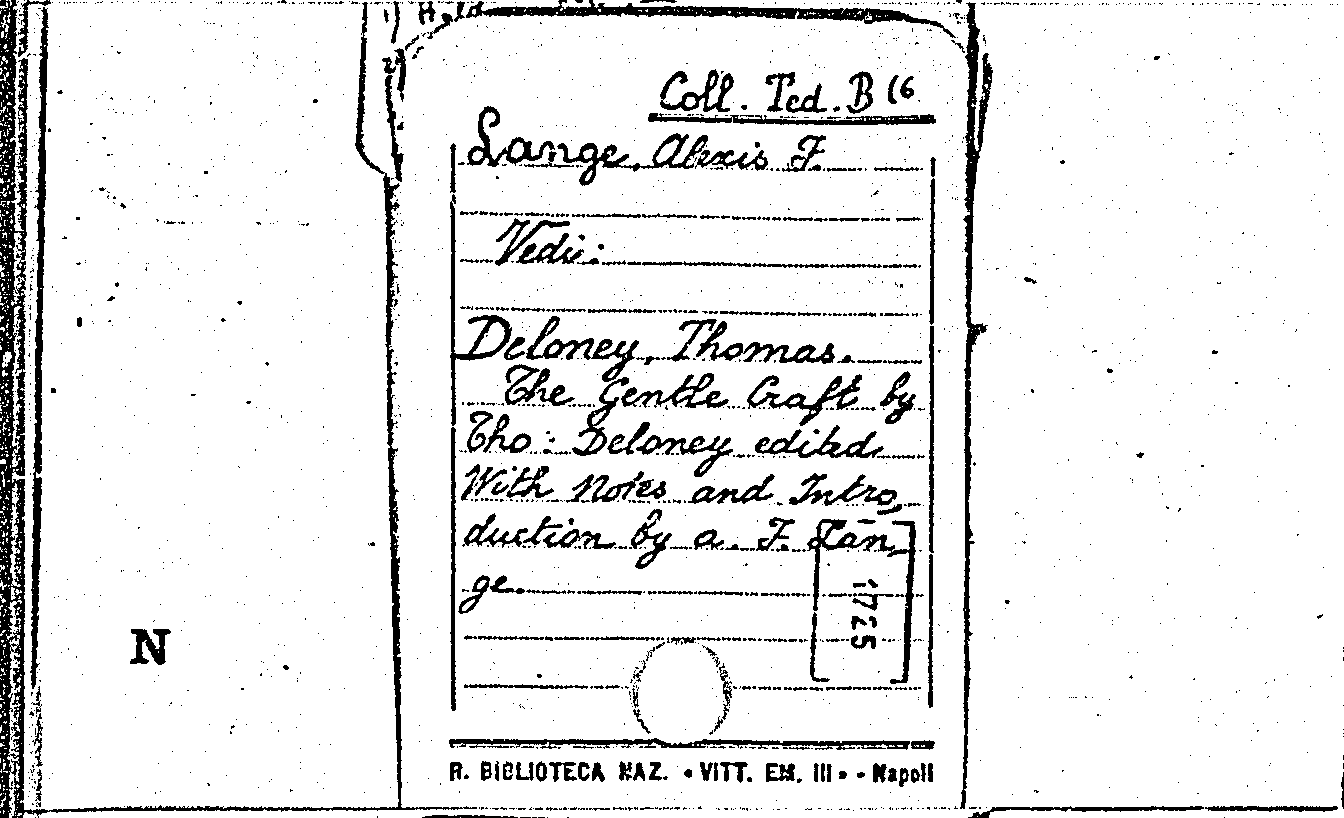 1) Hold
2)
Coll. Ted. B (6
Lange, Alexis F.
Vedi:
Deloney, Thomas.
The Gentle Craft by
Tho: Deloney edited
With Notes and Intro,
duction by A. F. Lan,
ge.
1725
N
R. BIBLIOTECA NAZ. • VITT. EM. III • - Napoli